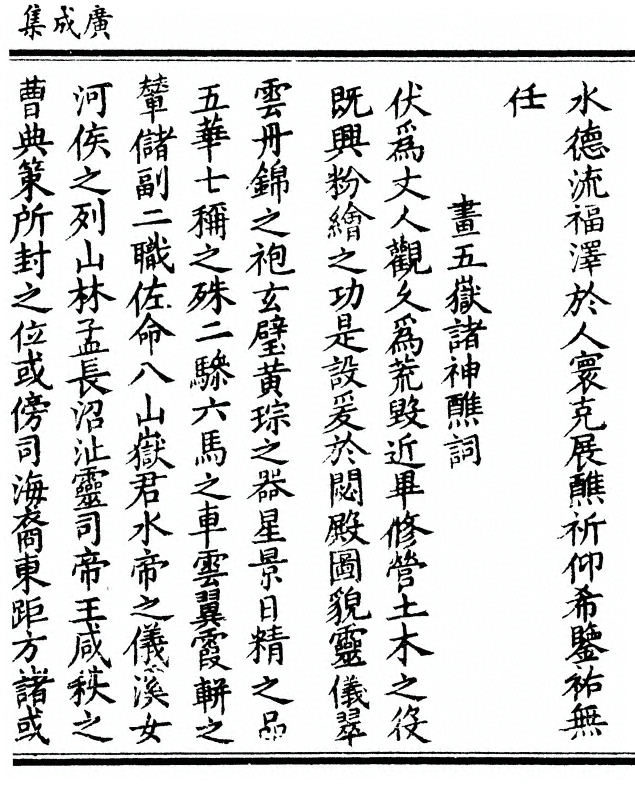 廣成集
水德流福澤於人寰克展醮祈仰希鑒祐無
任
畫五嶽諸神醮詞
伏爲丈人觀久爲荒毀近畢修營土木之役
既興粉繪之功是設爰於閟殿圖貌靈儀翠
雲丹錦之袍玄璧黃琮之器星景日精之品
五華七稱之殊二驂六馬之車雲翼霞軿之
輦儲副二職佐命八山嶽君水帝之儀溪女
河侯之列山林孟長沼沚靈司帝王咸秩之
曹典策所封之位或傍司海裔東距方諸或